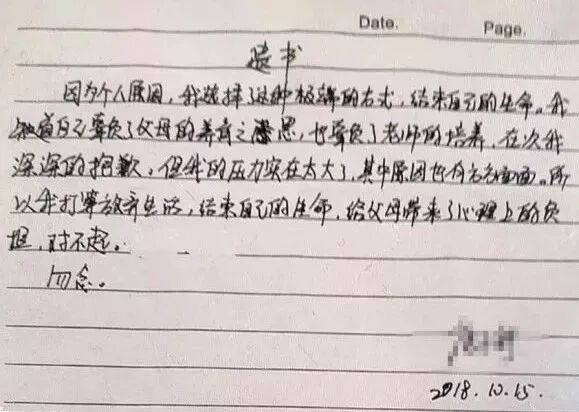 Date. Page.
遗书
因为个人原因，我选择了这种极端的方式，结束自己的生命。我
知道自己辜负了父母的养育之恩，也辜负了老师的培养，在次我
深深的抱歉，但我的压力实在太大了，其中原因也有方方面面。所
以我打算放弃生活，结束自己的生命，给父母带来了心理上的负
担，对不起。
勿念。
2018.10.15.